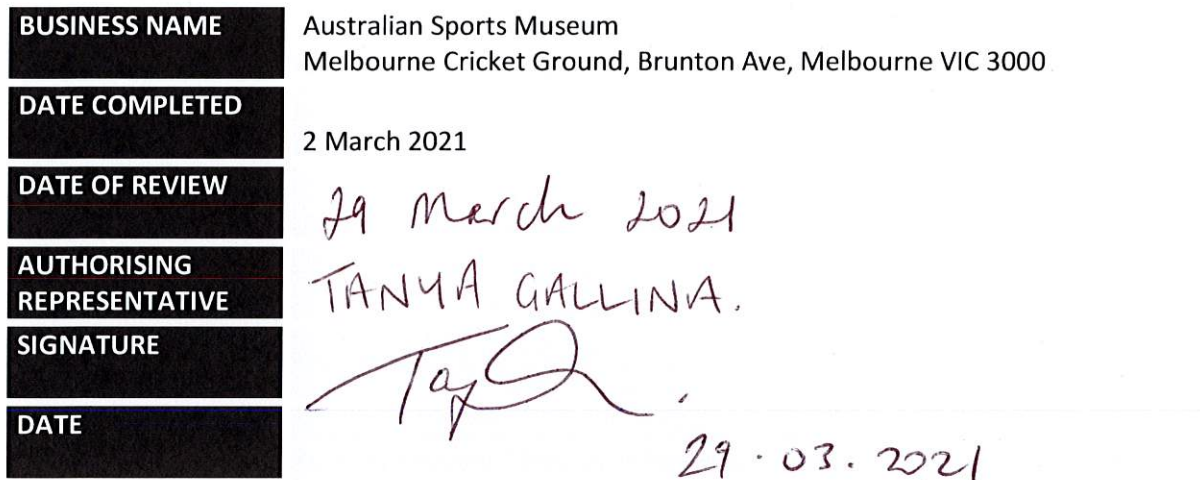 BUSINESS NAME
Australian Sports Museum
Melbourne Cricket Ground, Brunton Ave, Melbourne VIC 3000
DATE COMPLETED
2 March 2021
DATE OF REVIEW
29 March 2021
AUTHORISING
REPRESENTATIVE
TANYA GALLINA.
SIGNATURE
DATE
29.03.2021